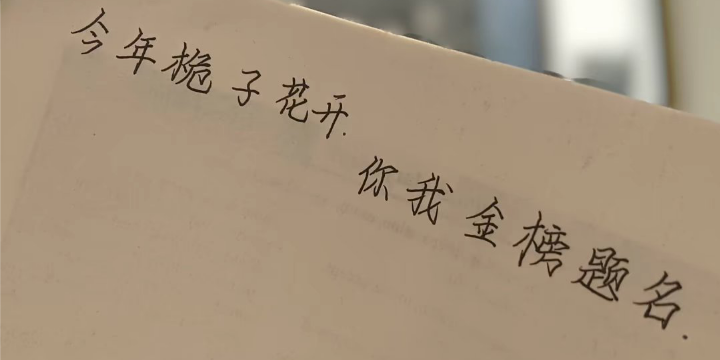 今年桅子花开.
你我金榜题名.